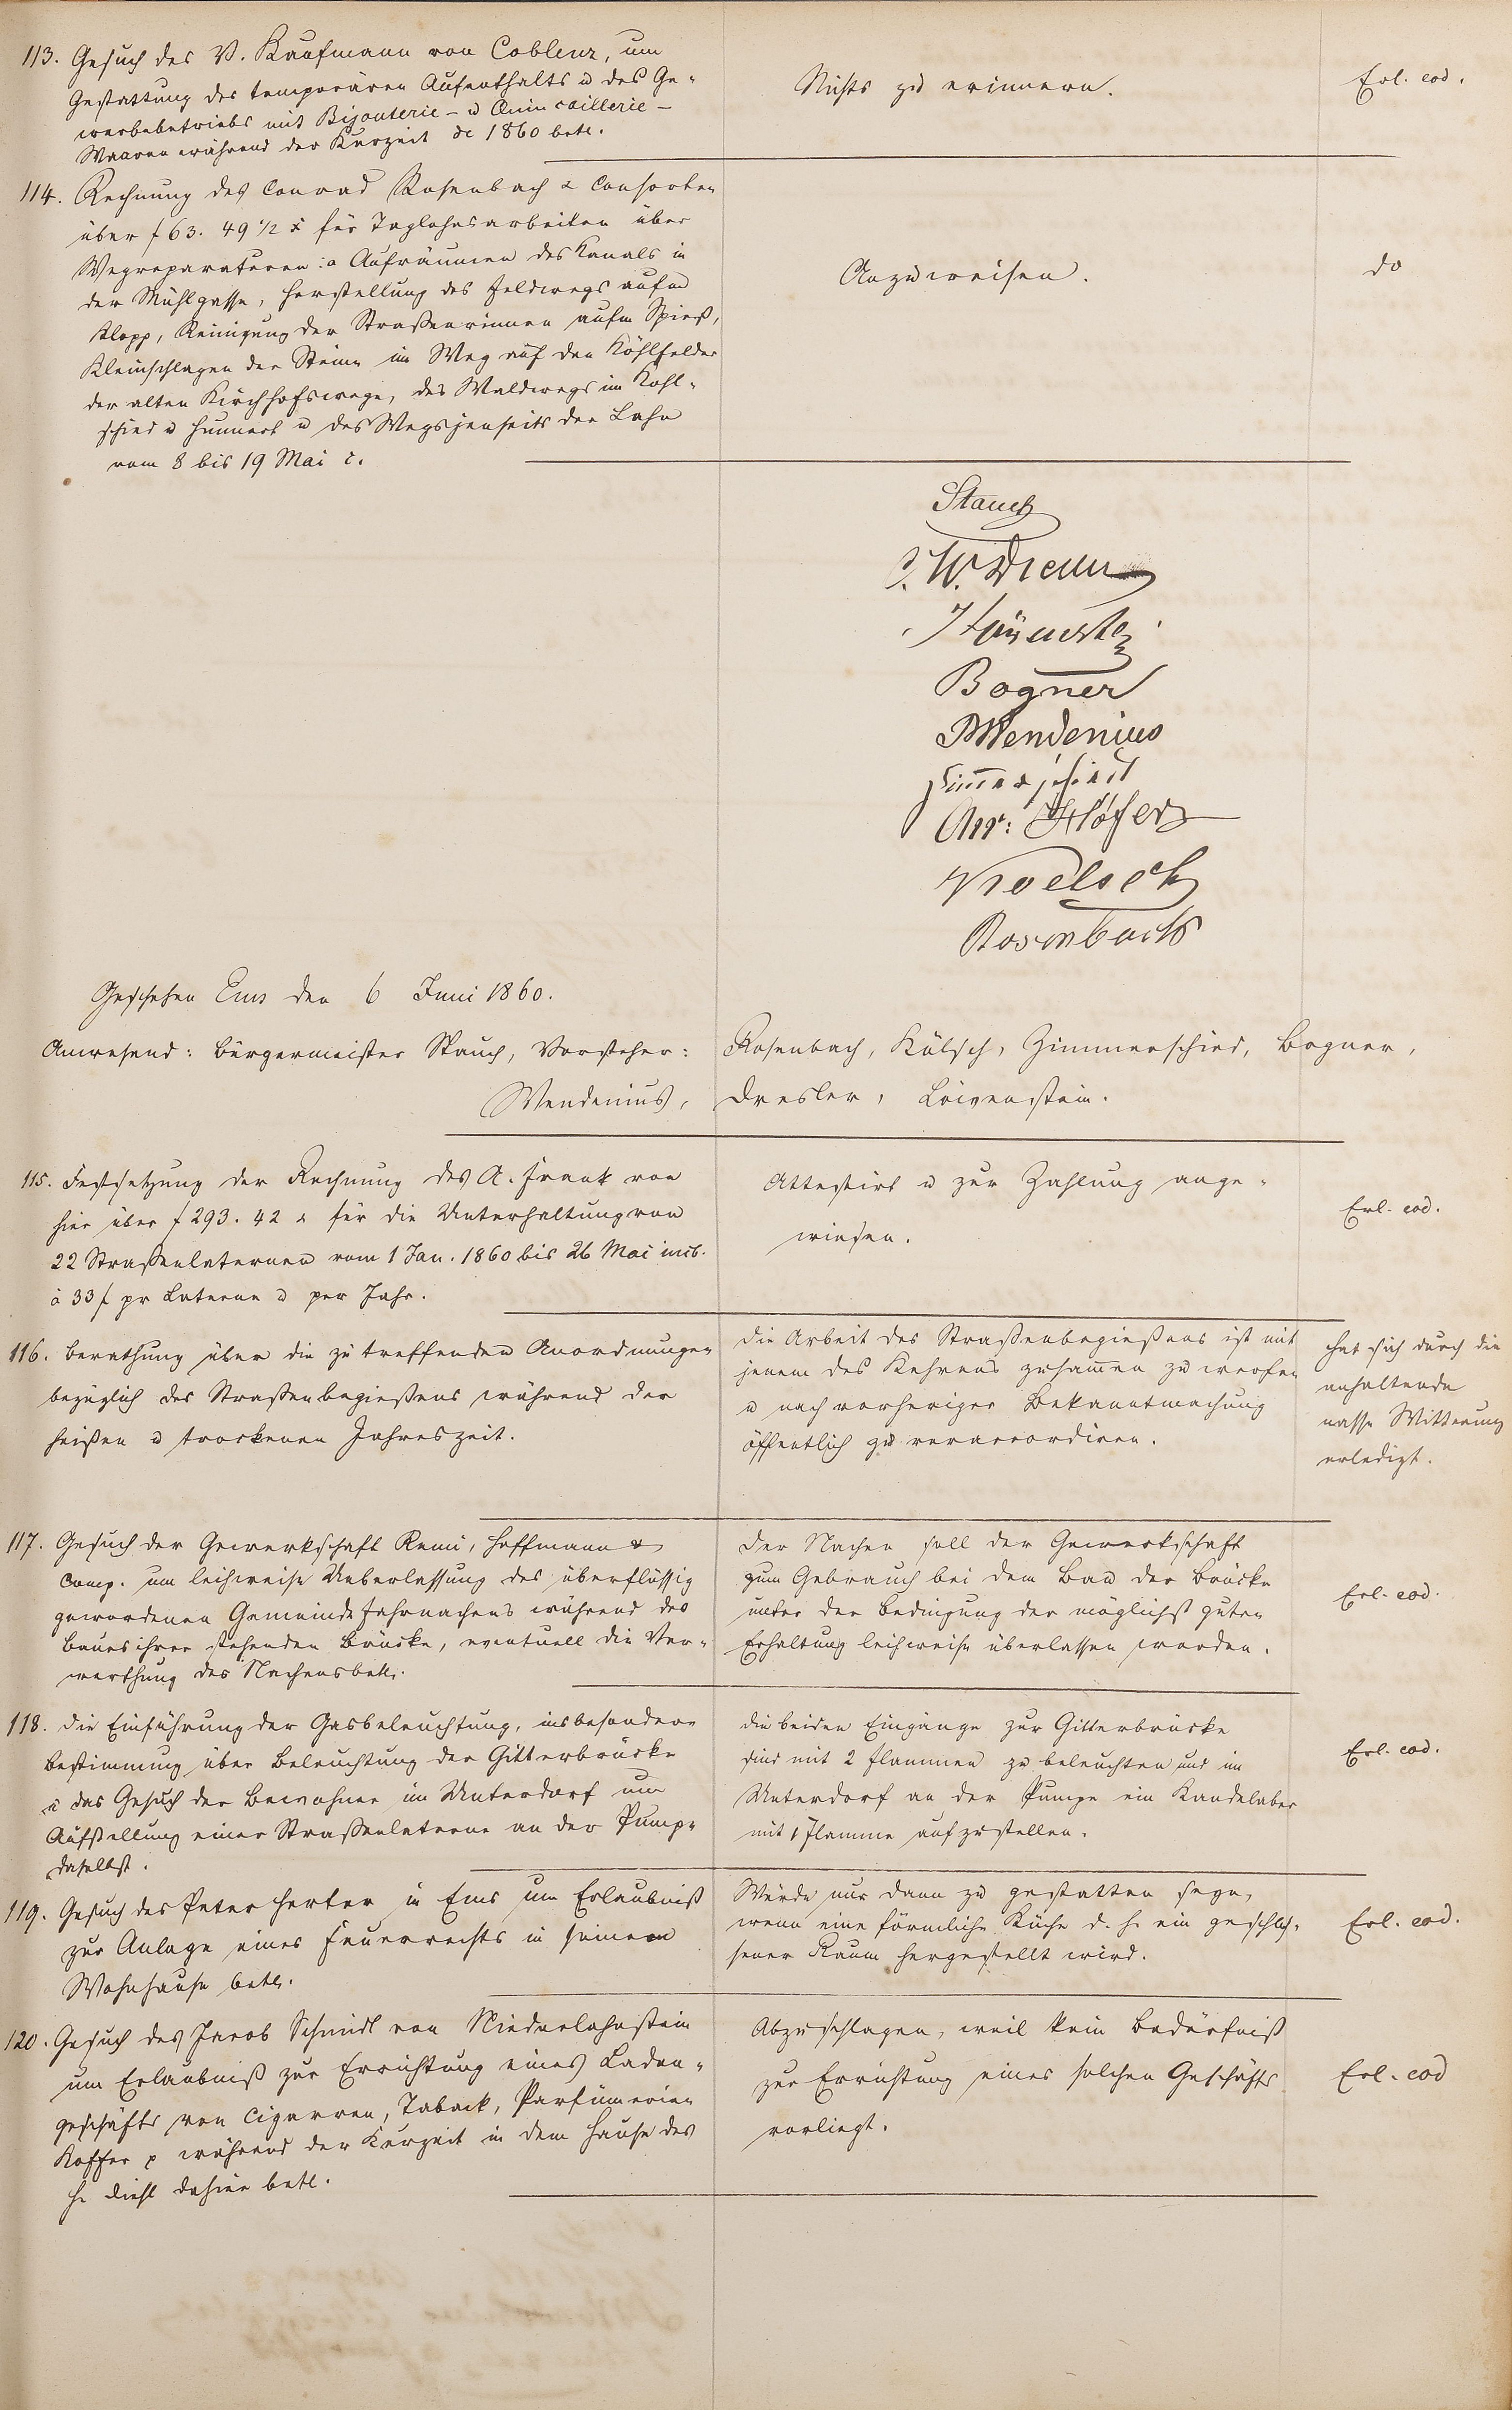 113. Gesuch des V. Kaufmann von Coblenz, um
Gestattung des temporären Aufenthalts u des Ge-
werbebetriebs mit Bijouterie- u Quincaillerie-
Waaren während der Kurzeit de 1860 betr.
Nichts zu erinnern.
Erl. eod.
114. Rechnung des Conrad Rosenbach & Consorten
über f 63. 49 1/2 x für Taglohnsarbeiten über
Wegreparaturen: a Aufräumen des Kanals in
der Mühlgasse, Herstellung des Feldwegs aufm
Klopp, Reinigung der Straßenrinnen aufm Spieß,
Kleinschlagen der Steine im Weg auf den Köhlfelder
der alten Kirchhofswege, des Waldwegs im Kohl-
schied u Hunnert u des Wegs jenseits der Lahn
vom 8 bis 19 Mai c.
Anzuweisen.
do
Stauch
Bogner
Wendenius
Zimmerschied
Höfer
Koelsch
Rosenbach
Geschehen Ems den 6 Juni 1860.
Anwesend: Bürgermeister Stauch, Vorsteher: Rosenbach, Kölsch, Zimmerschied, Bogner,
Wendenius, Dresler, Löwenstein.
115. Festsetzung der Rechnung des A. Frank von
hier über f 293. 42 x für die Unterhaltung von
22 Straßenlaternen vom 1 Jan. 1860 bis 26 Mai incl.
à 33 f pr Laterne u per Jahr.
Attestirt u zur Zahlung ange-
wiesen.
Erl. eod.
116. Berathung über die zu treffenden Anordnungen
bezüglich des Straßenbegießens während der
heißen u trockenen Jahreszeit.
Die Arbeit des Straßenbegießens ist mit
jenem des Kehrens zusammen zu werfen
u nach vorheriger Bekanntmachung
öffentlich zu veraccordiren.
hat sich durch die
anhaltende
nasse Witterung
erledigt.
117. Gesuch der Gewerkschaft Remi, Hoffmann &
Comp. um leihweise Ueberlassung des überflüssig
gewordenen Gemeinde Fahrnachens während des
Baues ihrer stehenden Brücke, eventuell die Ver-
werthung des Nachens betr.
Der Nachen soll der Gewerkschaft
zum Gebrauch bei dem Bau der Brücke
unter der Bedingung der möglichst guten
Erhaltung leihweise überlassen werden.
Erl. eod.
118. Die Einführung der Gasbeleuchtung, insbesondere
Bestimmung über Beleuchtung der Gitterbrücke
u das Gesuch der Bewohner im Unterdorf um
Aufstellung einer Straßenlaterne an der Pumpe
daselbst.
Die beiden Eingänge zur Gitterbrücke
sind mit 2 Flammen zu beleuchten und im
Unterdorf an der Pumpe ein Kandelaber
mit 1 Flamme aufzustellen.
Erl. eod.
119. Gesuch des Peter Herter in Ems um Erlaubniß
zur Anlage eines Feuerrechts in seinem
Wohnhause betr.
Würde nur dann zu gestatten seyn,
wenn eine förmliche Küche d. h. ein geschlos-
sener Raum hergestellt wird.
Erl. eod.
120. Gesuch des Jacob Schmidt von Niederlahnstein
um Erlaubniß zur Errichtung eines Laden-
geschäfts von Cigarren, Taback, Parfümerien
Koffer p während der Kurzeit in dem Hause des
H. Diehl dahier betr.
Abzuschlagen, weil kein Bedürfniß
zur Errichtung eines solchen Geschäfts
vorliegt.
Erl. eod